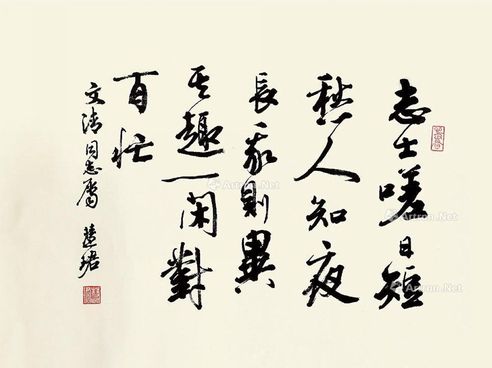 志士嗟日短
愁人知夜
長我則異
其趣一閑對
百忙
文清同志屬 慧珺
Artron.Net
Artron.Net
Artron.Net